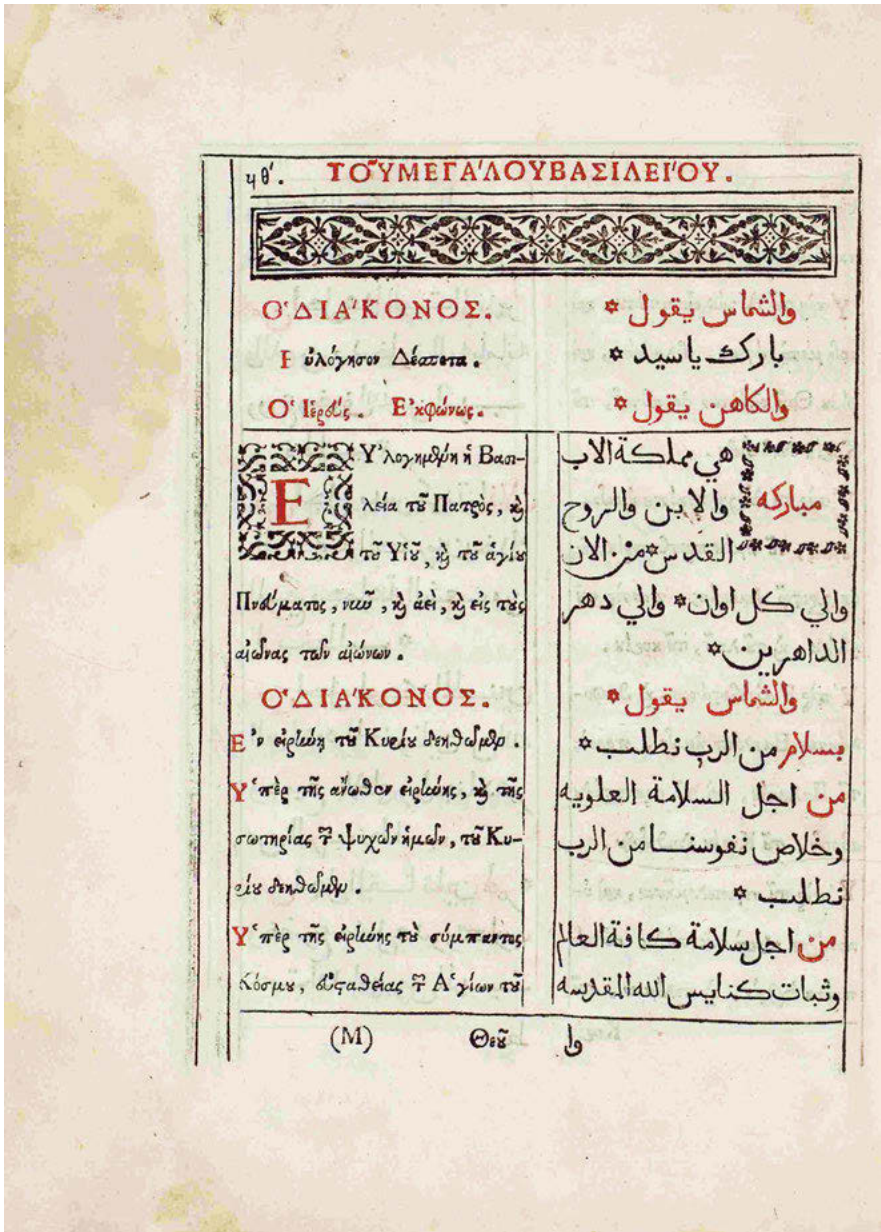 ϟθ΄. ΤΟΥ͂ ΜΕΓΑ΄ΛΟΥ ΒΑΣΙΛΕΙ΄ΟΥ.
Ο΄ ΔΙΑ΄ΚΟΝΟΣ.
Εὐλόγησον Δέσποτα.
Ο῾ Ιἑρεύς. Ε᾿κφώνως.
ΕΥ᾿λογημένη ἡ Βασι-
λεία τοῦ Πατρὸς, καὶ
τοῦ Υἱοῦ, καὶ τοῦ ἁγίου
Πνεύματος, νῦν, καὶ ἀεὶ, καὶ εἰς τοὺς
αἰῶνας τῶν αἰώνων.
Ο΄ ΔΙΑ΄ΚΟΝΟΣ.
Ε᾿ν εἰρήνῃ τοῦ Κυρίου δεηθῶμεν.
Υ῾πὲρ τῆς ἄνωθεν εἰρήνης, καὶ τῆς
σωτηρίας τῶν ψυχῶν ἡμῶν, τοῦ Κυ-
ρίου δεηθῶμεν.
Υ῾πὲρ τῆς εἰρήνης τοῦ σύμπαντος
Κόσμου, εὐσταθείας τῶν Α῾γίων τοῦ
والشماس يقول*
بارك ياسيد *
والكاهن يقول*
مباركه هي مملكة الاب
والابن والروح
القدس* من الان
والي كل اوان* والي دهر
الداهرين*
والشماس يقول*
بسلام من الرب نطلب*
من اجل السلامة العلويه
وخلاص نفوسنا من الرب
نطلب *
من اجل سلامة كافة العالم
وثبات كنايس الله المقدسه
(M) Θεοῦ وا